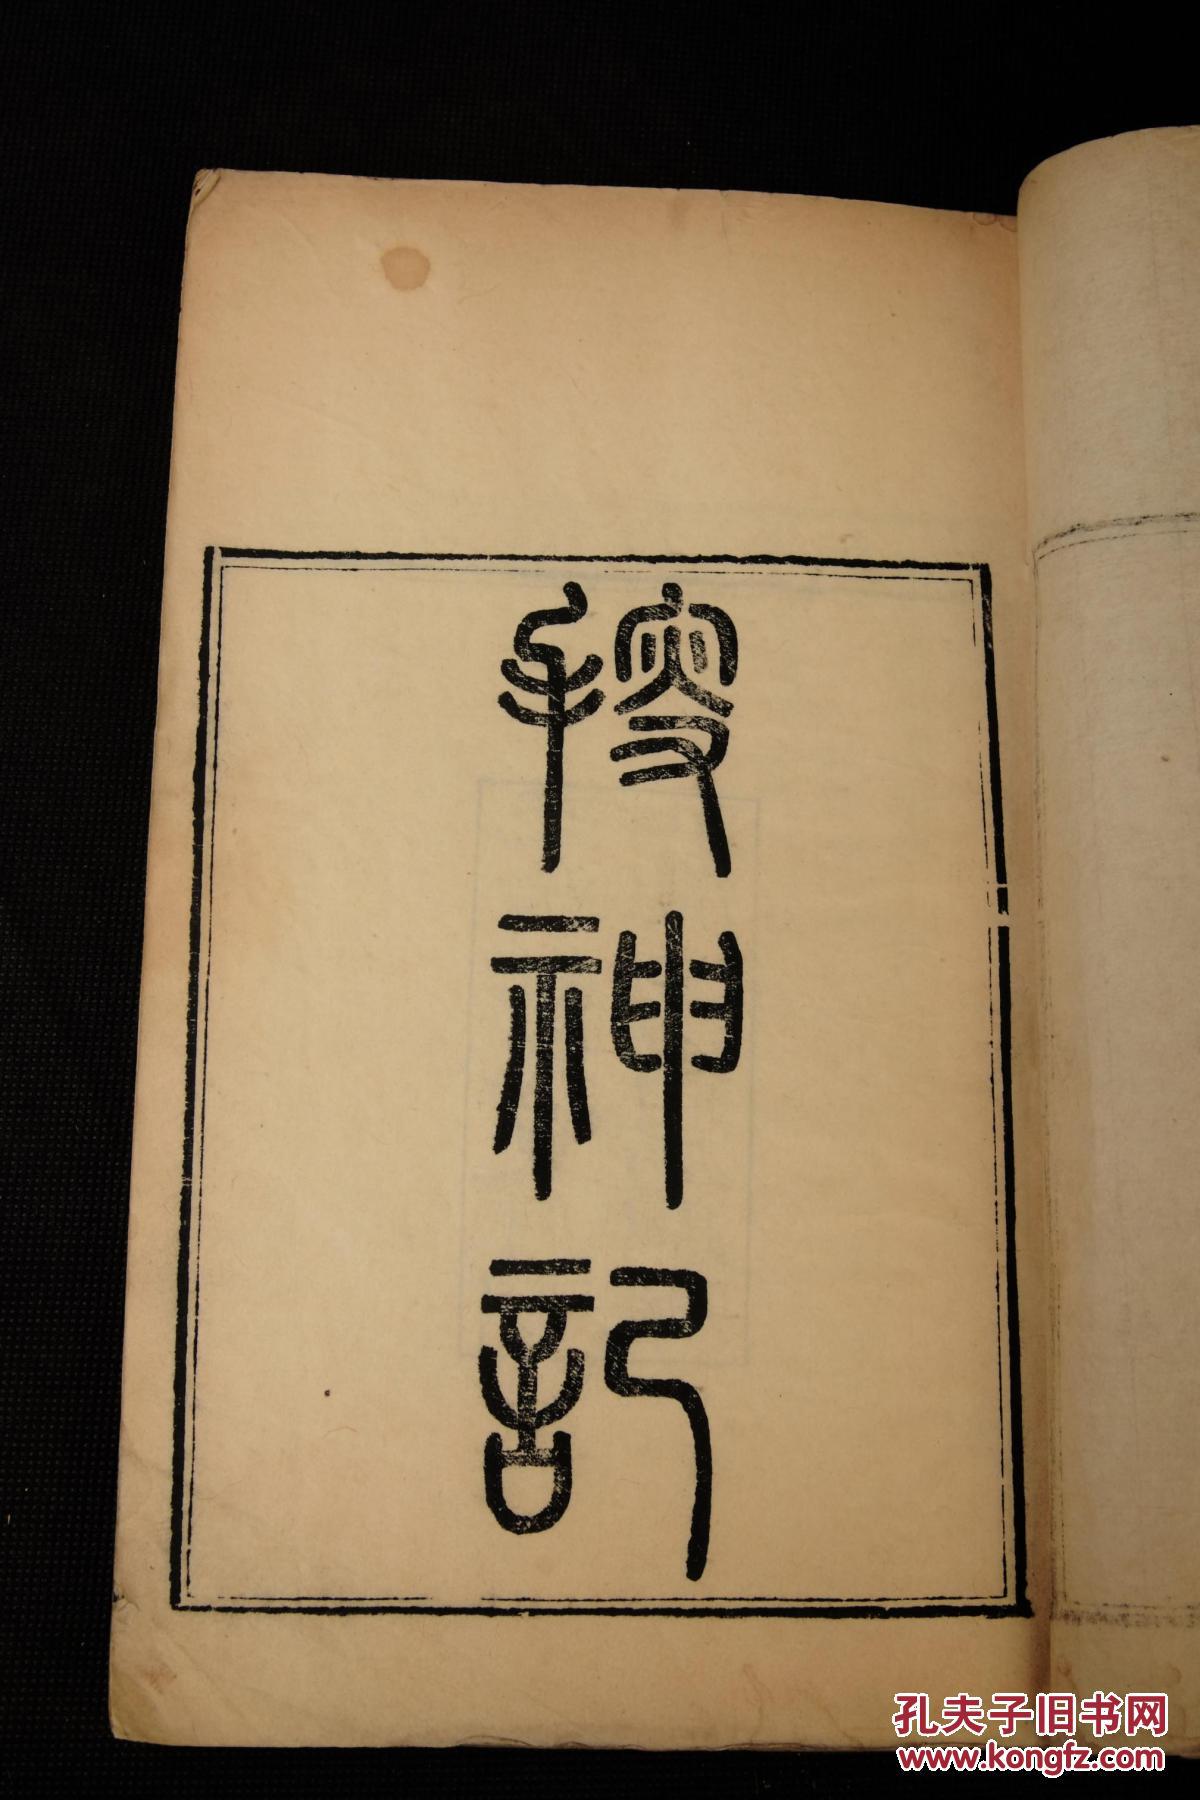 搜神記
孔夫子旧书网
www.kongfz.com